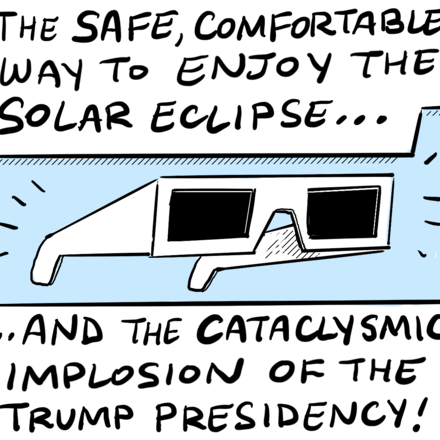 THE SAFE, COMFORTABLE
WAY TO ENJOY THE
SOLAR ECLIPSE...
...AND THE CATACLYSMIC
IMPLOSION OF THE
TRUMP PRESIDENCY!